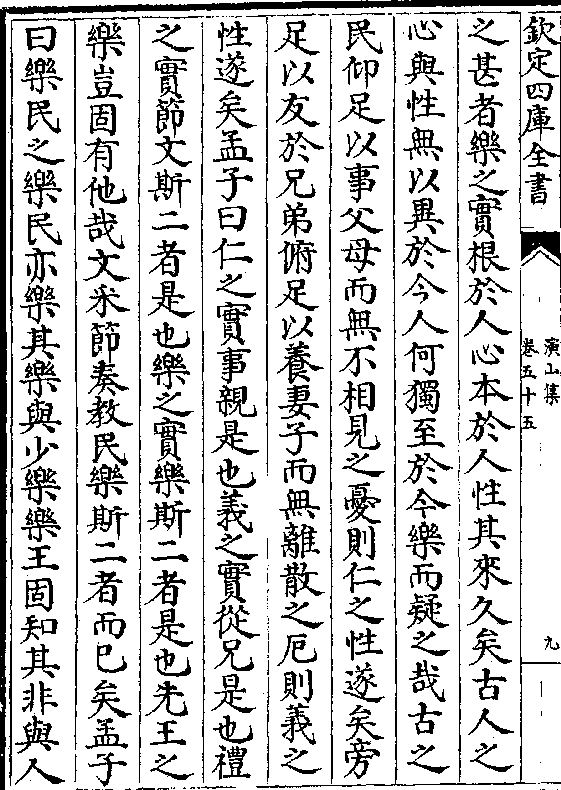 欽定四庫全書
演山集
卷五十五
九
之甚者樂之實根於人心本於人性其來久矣古人之
心與性無以異於今人何獨至於今樂而疑之哉古之
民仰足以事父母而無不相見之憂則仁之性遂矣旁
足以友於兄弟俯足以養妻子而無離散之厄則義之
性遂矣孟子曰仁之實事親是也義之實從兄是也禮
之實節文斯二者是也樂之實樂斯二者是也先王之
樂豈固有他哉文采節奏教民樂斯二者而已矣孟子
曰樂民之樂民亦樂其樂與少樂樂王固知其非與人